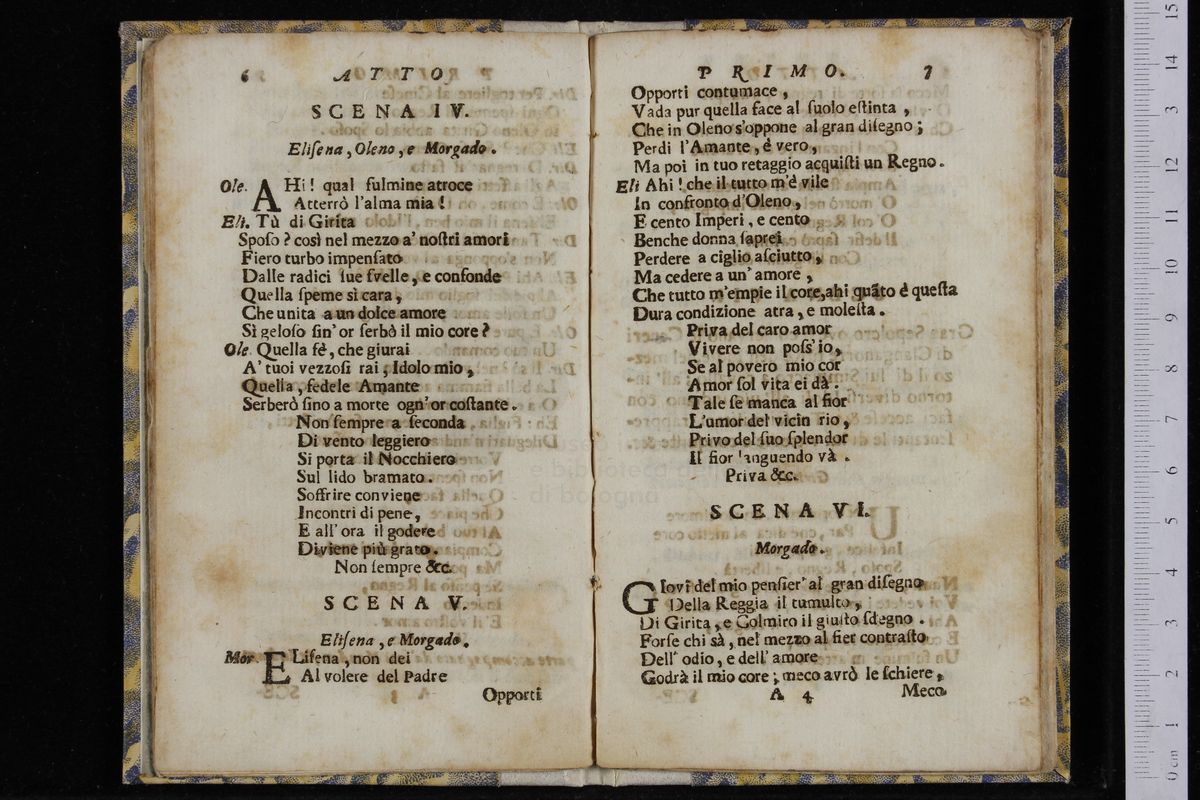 6 ATTO
SCENA IV.
Eliſena, Oleno, e Morgado.
Ole. AHi! qual fulmine atroce
Atterrò l'alma mia!
Eli. Tù di Girita
Spoſo? così nel mezzo a' noſtri amori
Fiero turbo impenſato
Dalle radici ſue ſvelle, e confonde
Quella ſpeme sì cara,
Che unita a un dolce amore
Sì geloſo ſin' or ſerbò il mio core?
Ole. Quella fè, che giurai
A' tuoi vezzoſi rai, Idolo mio,
Quella, fedele Amante
Serberò ſino a morte ogn'or coſtante.
Non ſempre a ſeconda
Di vento leggiero
Si porta il Nocchiero
Sul lido bramato.
Soffrire conviene
Incontri di pene,
E all' ora il godere
Diviene più grato.
Non ſempre &c.
SCENA V.
Eliſena, e Morgado.
Mor. ELiſena, non dei
Al volere del Padre
Opporti
PRIMO. 7
Opporti contumace,
Vada pur quella face al ſuolo eſtinta,
Che in Oleno s'oppone al gran diſegno;
Perdi l'Amante, è vero,
Ma poi in tuo retaggio acquiſti un Regno.
Eli Ahi! che il tutto m'è vile
In confronto d'Oleno,
E cento Imperi, e cento
Benche donna ſaprei
Perdere a ciglio aſciutto,
Ma cedere a un' amore,
Che tutto m'empie il core, ahi quãto è queſta
Dura condizione atra, e moleſta.
Priva del caro amor
Vivere non poſs'io,
Se al povero mio cor
Amor ſol vita ei dà.
Tale ſe manca al fior
L'umor del vicin rio,
Privo del ſuo ſplendor
Il fior languendo và.
Priva &c.
SCENA VI.
Morgado.
GIovi del mio penſier' al gran diſegno
Della Reggia il tumulto,
Di Girita, e Golmiro il giuſto ſdegno.
Forſe chi sà, nel mezzo al fier contraſto
Dell' odio, e dell' amore
Godrà il mio core; meco avrò le ſchiere,
A 4 Meco